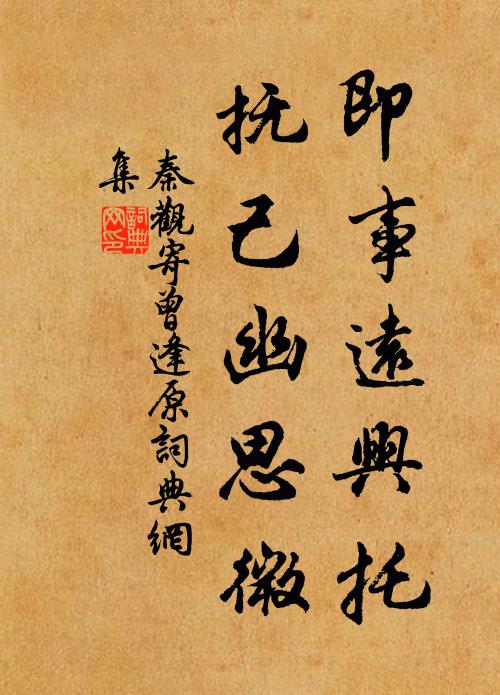 即事遠興托
抚己幽思微
秦觀寄曾逢原詞典網
集
詞典
网印